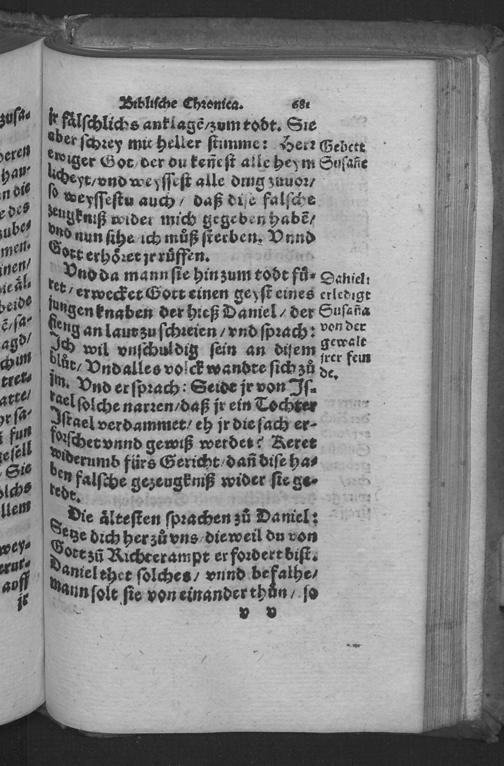 Biblische Chronica. 681
jr fälschlichs anklagẽ/zum todt. Sie
aber schrey mit heller stimme: Herr
ewiger Got/der du keñest alle heym
licheyt/vnd weyssest alle ding zuuor/
so weyssestu auch/ daß dise falsche
zeugkniß wider mich gegeben habẽ/
vnd nun sihe/ich můß sterben. Vnnd
Gott erhöret jr rüffen.
Vnd da mann sie hin zum todt fü⸗
ret/erwecket Gott einen geyst eines
jungen knaben der hieß Daniel/der
fieng an laut zu schreien/vnd sprach:
Ich wil vnschuldig sein an disem
blůt/Vnd alles volck wandte sich zů
jm. Vnd er sprach: Seide jr von Is⸗
rael solche narren/daß jr ein Tochter
Israel verdammet/eh jr die sach er⸗
forschet vnnd gewiß werdet? Keret
widerumb fürs Gericht/dañ dise ha⸗
ben falsche gezeugkniß wider sie ge⸗
redt.
Die ältesten sprachen zů Daniel:
Setze dich her zů vns/dieweil du von
Gott zů Richterampt erfordert bist.
Daniel thet solches/ vnnd befalhe/
mann solt sie von einander thůn/so
v v
Gebett
Susañe
Daniel
erledigt
Susaña
von der
gewalt
jrer fein
de.
zusa⸗
deren
hau⸗
n die
e des
zubes
men.
inen/
beide
agd/
trer⸗
atte/
gesell
Sie
olchs
llem
wey⸗
auff
jr